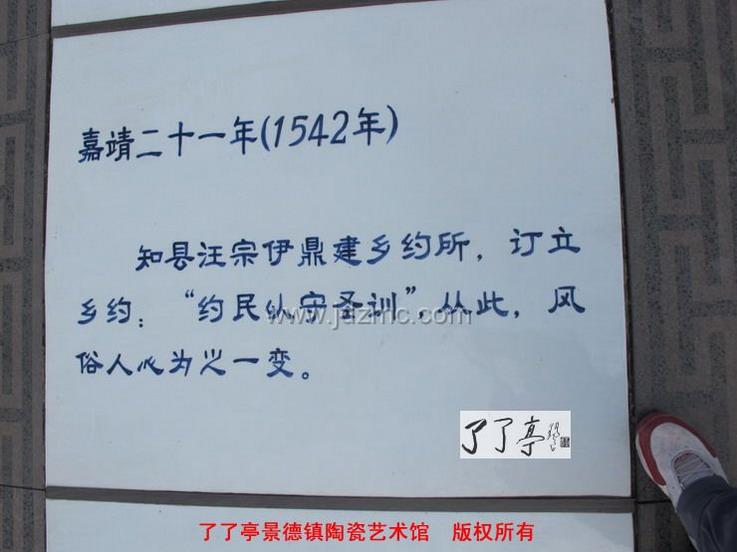 嘉靖二十一年(1542年)
知县汪宗伊鼎建乡约所，订立
乡约：“约民以守圣训”，从此，风
俗人心为之一变。
www.jdzmc.com
了了亭
了了亭景德镇陶瓷艺术馆 版权所有